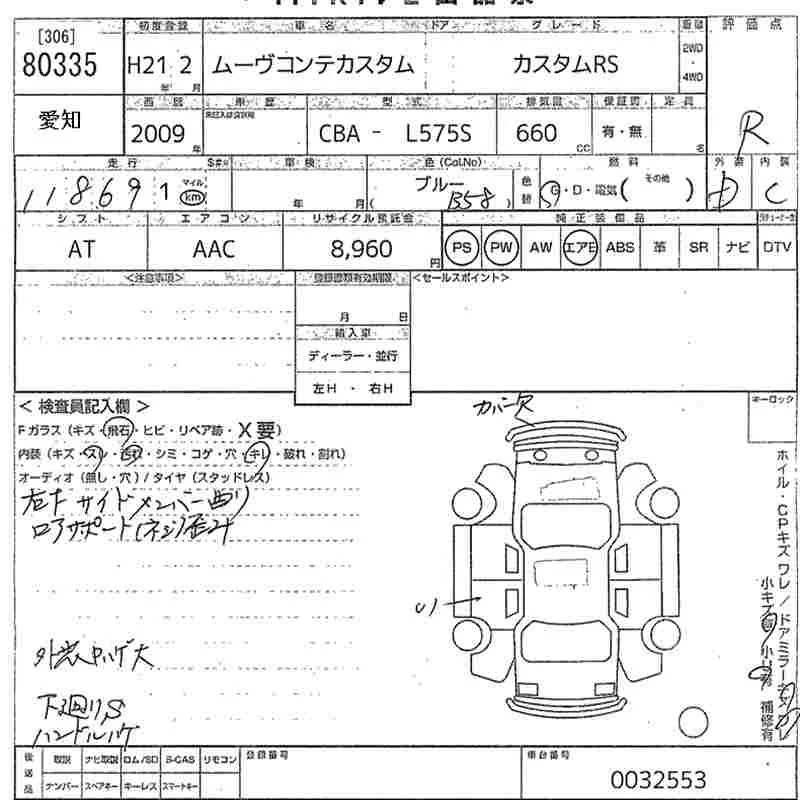 [306]
80335
初度登録 車名 ドア グレード 駆動 評価点
H21 2 年 月 ムーヴコンテカスタム カスタムRS 2WD ・ 4WD
愛知
車歴 型式 排気量 保証書 定員
2009 年 CBA - L575S 660 CC 有・無 名 R
走行 車検 色(Col.No) 燃料 外装 内装
118691 マイル km 年 月 ブルー B58 色替 G・D・電気( その他 ) D C
シフト エアコン リサイクル預託金 純正装備品
AT AAC 8,960 円 PS PW AW エアB ABS 革 SR ナビ DTV
<注意事項> 登録書類有効期限 <セールスポイント>
月 日
輸入車
ディーラー・並行
左H ・ 右H
< 検査員記入欄 > カバー欠 キーロック
Fガラス (キズ・飛石・ヒビ・リペア跡・X要)
内装 (キズ・スレ・汚れ・シミ・コゲ・穴・キレ・破れ・割れ)
オーディオ (無し・穴) / タイヤ (スタッドレス)
左下サイドメンバー曲り
ロアサポート(ネジ)歪み
ホイル・CPキズ ワレ / ドアミラーキズ ワレ
小キズ 小凹 補修有
外装ハゲ大
下廻りS
ハンドルハゲ
後送品 取説 ナビ取説 ロム/SD B-CAS リモコン 登録番号 車台番号
ナンバー スペアキー キーレス スマートキー 0032553